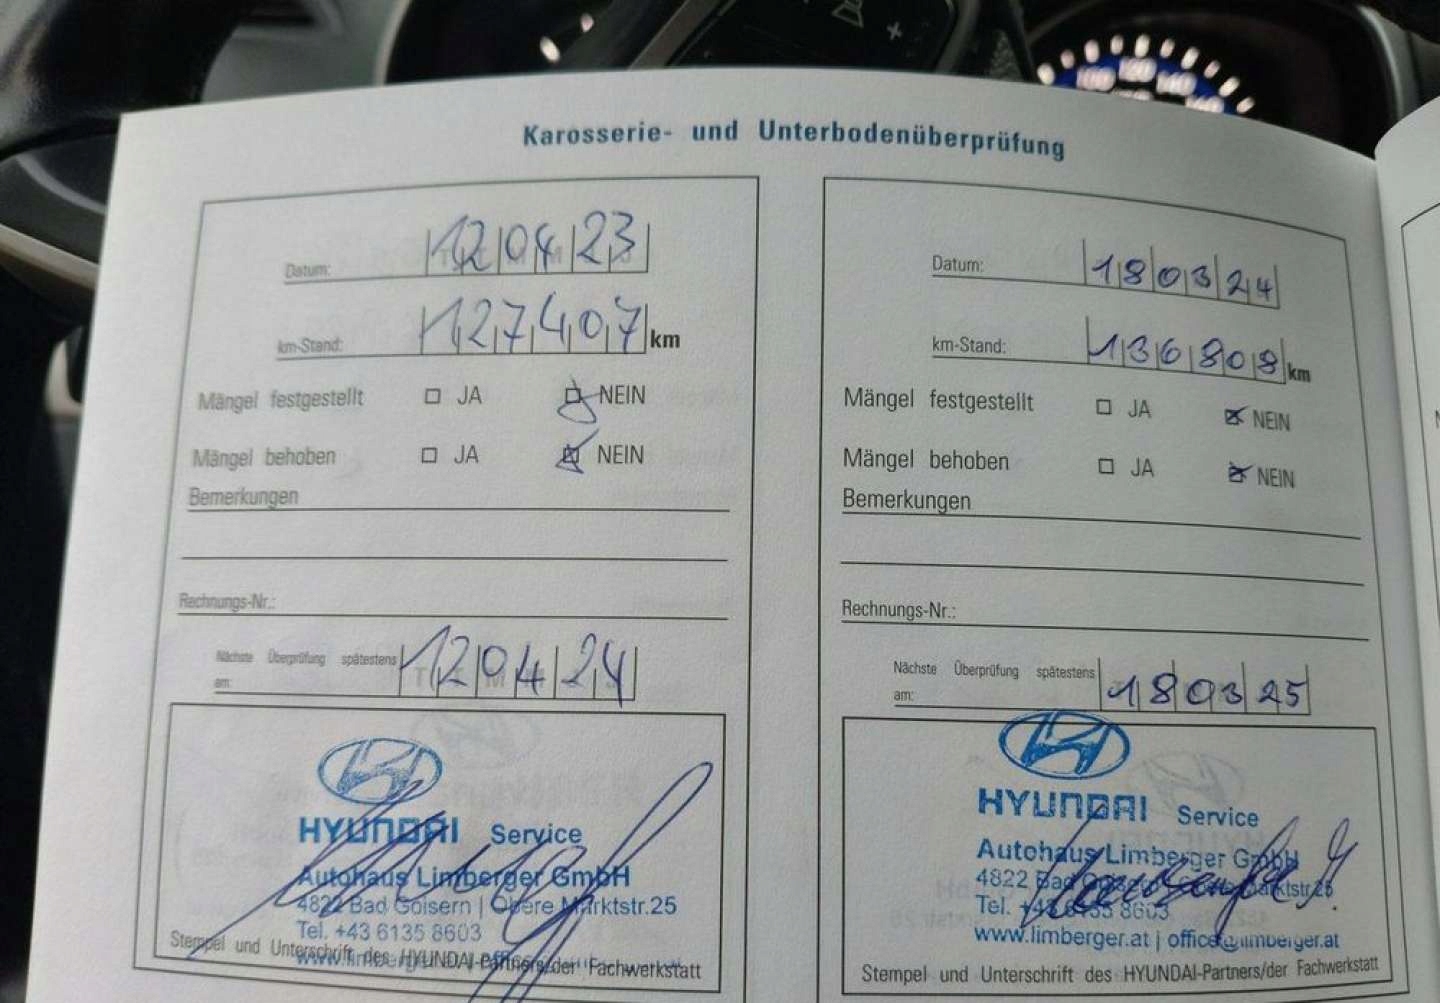 Karosserie- und Unterbodenüberprüfung
Datum: 12 04 23
km-Stand: 127407 km
Mängel festgestellt JA NEIN
Mängel behoben JA NEIN
Bemerkungen
Rechnungs-Nr.:
Nächste Überprüfung spätestens am: 12 04 24
HYUNDAI Service
Autohaus Limberger GmbH
4822 Bad Goisern | Obere Marktstr.25
Tel. +43 6135 8603
Stempel und Unterschrift des HYUNDAI-Partners/der Fachwerkstatt
Datum: 18 03 24
km-Stand: 136808 km
Mängel festgestellt JA NEIN
Mängel behoben JA NEIN
Bemerkungen
Rechnungs-Nr.:
Nächste Überprüfung spätestens am: 18 03 25
HYUNDAI Service
Autohaus Limberger GmbH
4822 Bad Goisern | Obere Marktstr.25
Tel. +43 6135 8603
www.limberger.at | office@limberger.at
Stempel und Unterschrift des HYUNDAI-Partners/der Fachwerkstatt
100 120 140 160